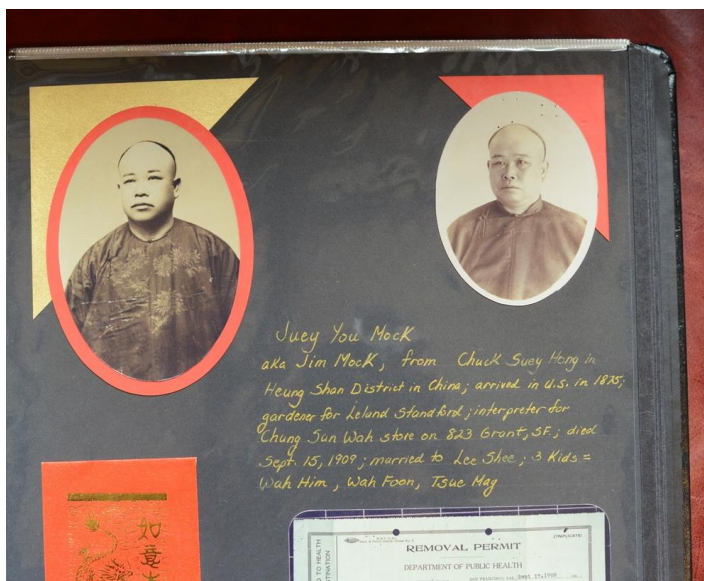 Juey You Mock
aka Jim Mock, from Chuck Suey Hong in
Heung Shan District in China; arrived in U.S. in 1875;
gardener for Leland Standford; interpreter for
Chung Sun Wah store on 823 Grant, SF.; died
Sept. 15, 1909; married to Lee Shee; 3 Kids =
Wah Him, Wah Foon, Tsue May
如
意
REMOVAL PERMIT
DEPARTMENT OF PUBLIC HEALTH
SAN FRANCISCO, CAL. Sept 17, 1909